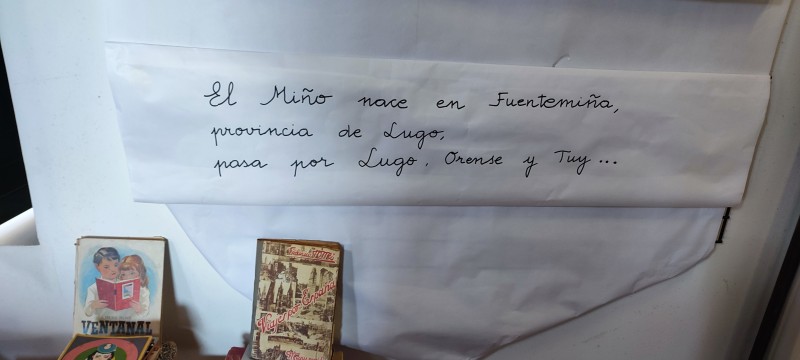 El Miño nace en Fuentemiña,
provincia de Lugo,
pasa por Lugo, Orense y Tuy...
VENTANAL
Viaje por España